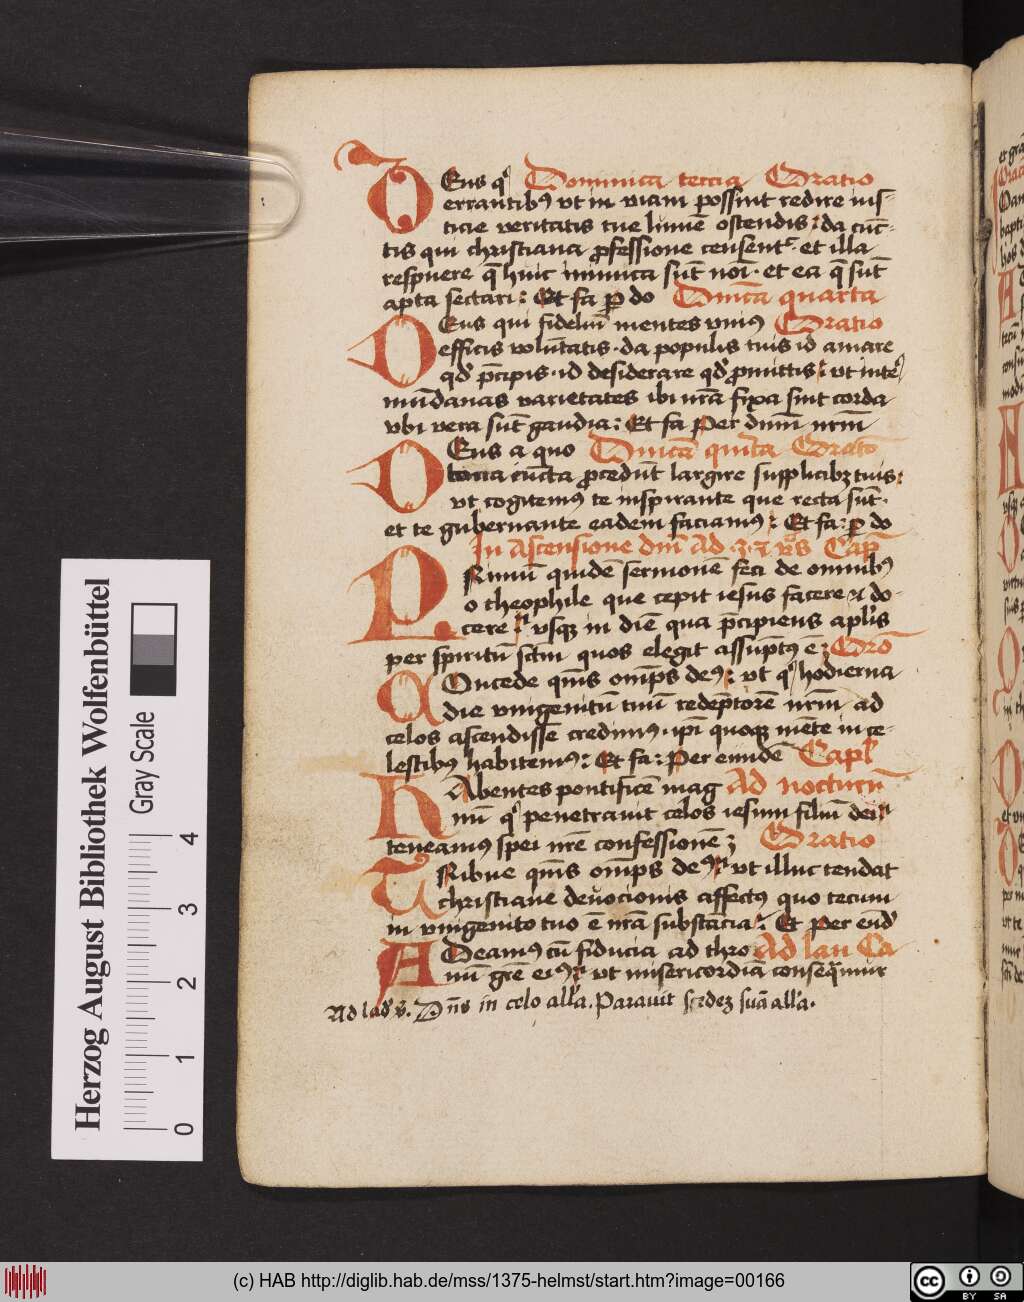 DEus qͥ Dominica tercia Oratio
errantibꝰ vt in viam possint redire ius-
ticie veritatis tue lumē ostendis: da cūc-
tis qui christiana ꝓfessione censentᷣ· et illa
respuere q̄ huic inimica sūt noī· et ea q̄ sūt
apta sectari: Et fa ꝑ do Dnica quarta
DEus qui fideliū mentes vniꝰ Oratio
efficis volūtatis· da populis tuis id amare
qd̕ p̄cipis· id desiderare qd̕ ꝓmittis: vt inteꝰ
mūdanas varietates ibi nr̄a fixa sint corda
vbi vera sūt gaudia: Et fa Per dnm̄ nrm̄
DEus a quo Dnica quīta Orato
bona cūcta ꝓcedūt largire supplicibꝫ tuis:
vt cogitemꝰ te inspirante que recta sūt·
et te gubernante eadem faciamꝰ: Et fa: ꝑ do
In Ascensione dnī Ad ·z· Capl̄
PRimū quidē sermonē feci de omnibꝰ
o theophile que cepit iesus facere ⁊ do-
cere: vsqꝫ in diē qua p̄cipiens aplis
per spiritū sctm̄ quos elegit assūptꝰ ē: Oro
COncede qm̄s onīps deꝰ: vt qͥ hodierna
die vnigenitū tuū redēptorē nrm̄ ad
celos ascendisse credimꝰ· ipī quoqꝫ mēte in ce-
lestibꝰ habitemꝰ: Et fa: Per eundē Capl̄
HAbentes pontificē mag Ad nocturū
nū qͥ penetrauit celos iesum filiū dei:
teneamꝰ spei nrē confessionē: Oratio
TRibue qm̄s onīps deꝰ: vt illuc tendat
christiane deuocionis affectꝰ quo tecum
in vnigenito tuo ē nr̄a substācia: Et Per eūd̕
ADeamꝰ cū fiducia ad thro Ad lau Ca
nū grē eiꝰ: vt misericordiā conseq̄mur
Ad lad̕ v̕. Dn̄s in celo all̕a. Parauit sedeꝫ suā all̕a.
Herzog August Bibliothek Wolfenbüttel
Gray Scale
0 1 2 3 4
(c) HAB http://diglib.hab.de/mss/1375-helmst/start.htm?image=00166
cc BY SA